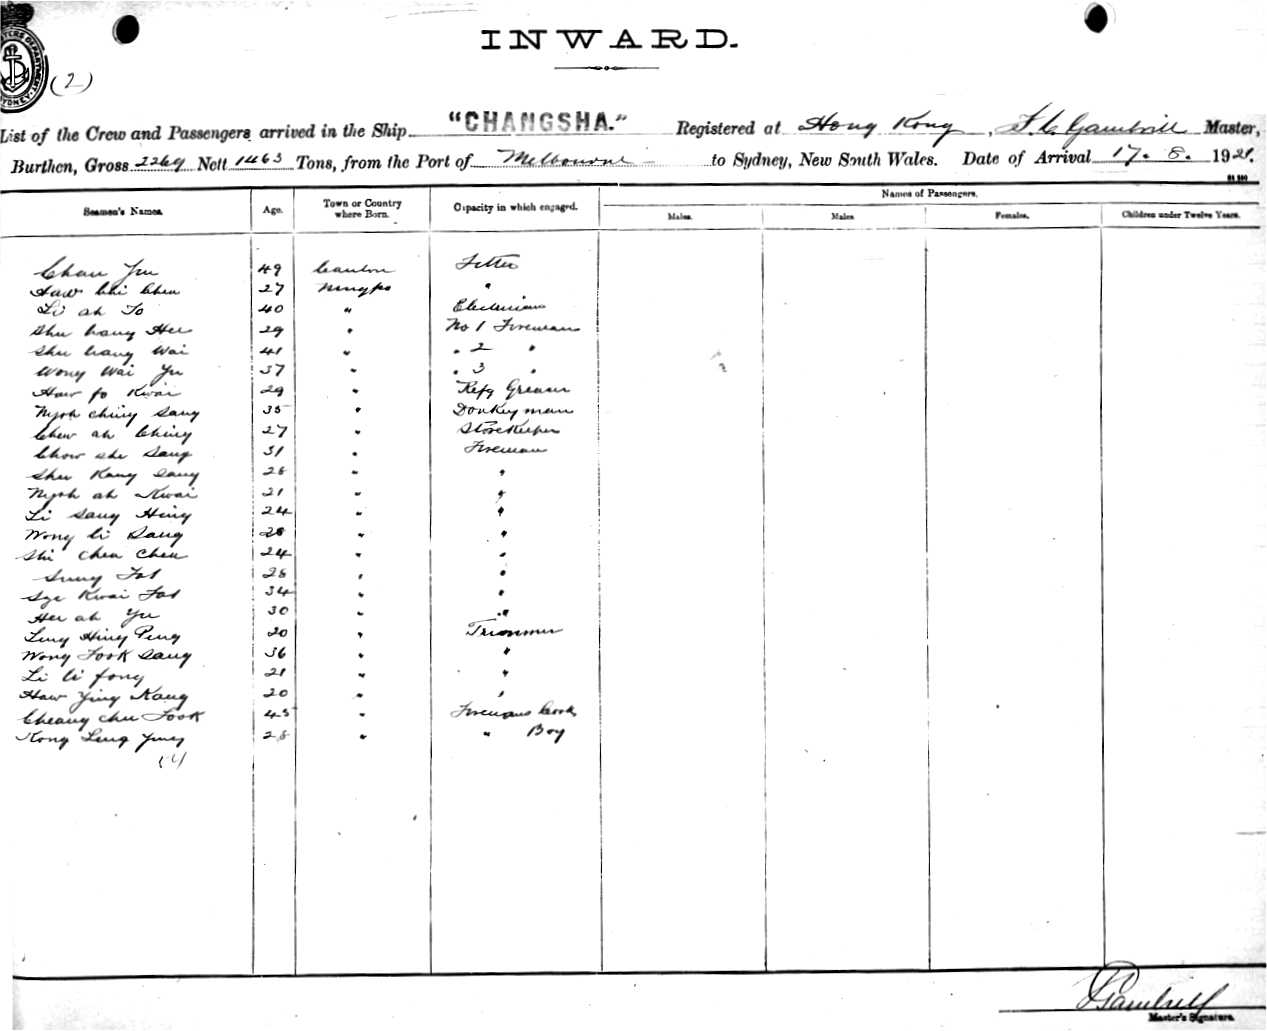 (2)
INWARD.
List of the Crew and Passengers arrived in the Ship "CHANGSHA." Registered at Hong Kong, F. C. Gambrill Master,
Burthen, Gross 2269 Nett 1463 Tons, from the Port of Melbourne to Sydney, New South Wales. Date of Arrival 17. 8. 1921.
Seamen's Names. Age. Town or Country where Born. Capacity in which engaged. Names of Passengers.
Males. Males Females. Children under Twelve Years.
Chan Yu 49 Canton Fitter
Haw Chi Chen 27 Ningpo "
Li ah To 40 " Electrician
Shu hang Hee 29 " No 1 Fireman
Shu hang Wai 41 " " 2 "
Wong Wai Yu 37 " " 3 "
Haw fo Kwai 29 " Refg Greaser
Nyoh Ching Sang 35 " Donkeyman
Chew ah Ching 27 " Storekeeper
Chow she Sang 31 " Fireman
Shu Kang Sang 28 " "
Nyoh ah Kwai 21 " "
Li Sang Hing 24 " "
Wong li Sang 28 " "
Shi Chea Chen 24 " "
Sung Fat 28 " "
Sze Kwai Fat 34 " "
Her ah Yu 30 " "
Ling Hing Peng 20 " Trimmer
Wong Fook Sang 36 " "
Li li fong 21 " "
Haw Ying Kang 20 " "
Cheang Chu Fook 45 " Firemans Cook
Kong Ling Yung 28 " " Boy
Gambrill
Master's Signature.